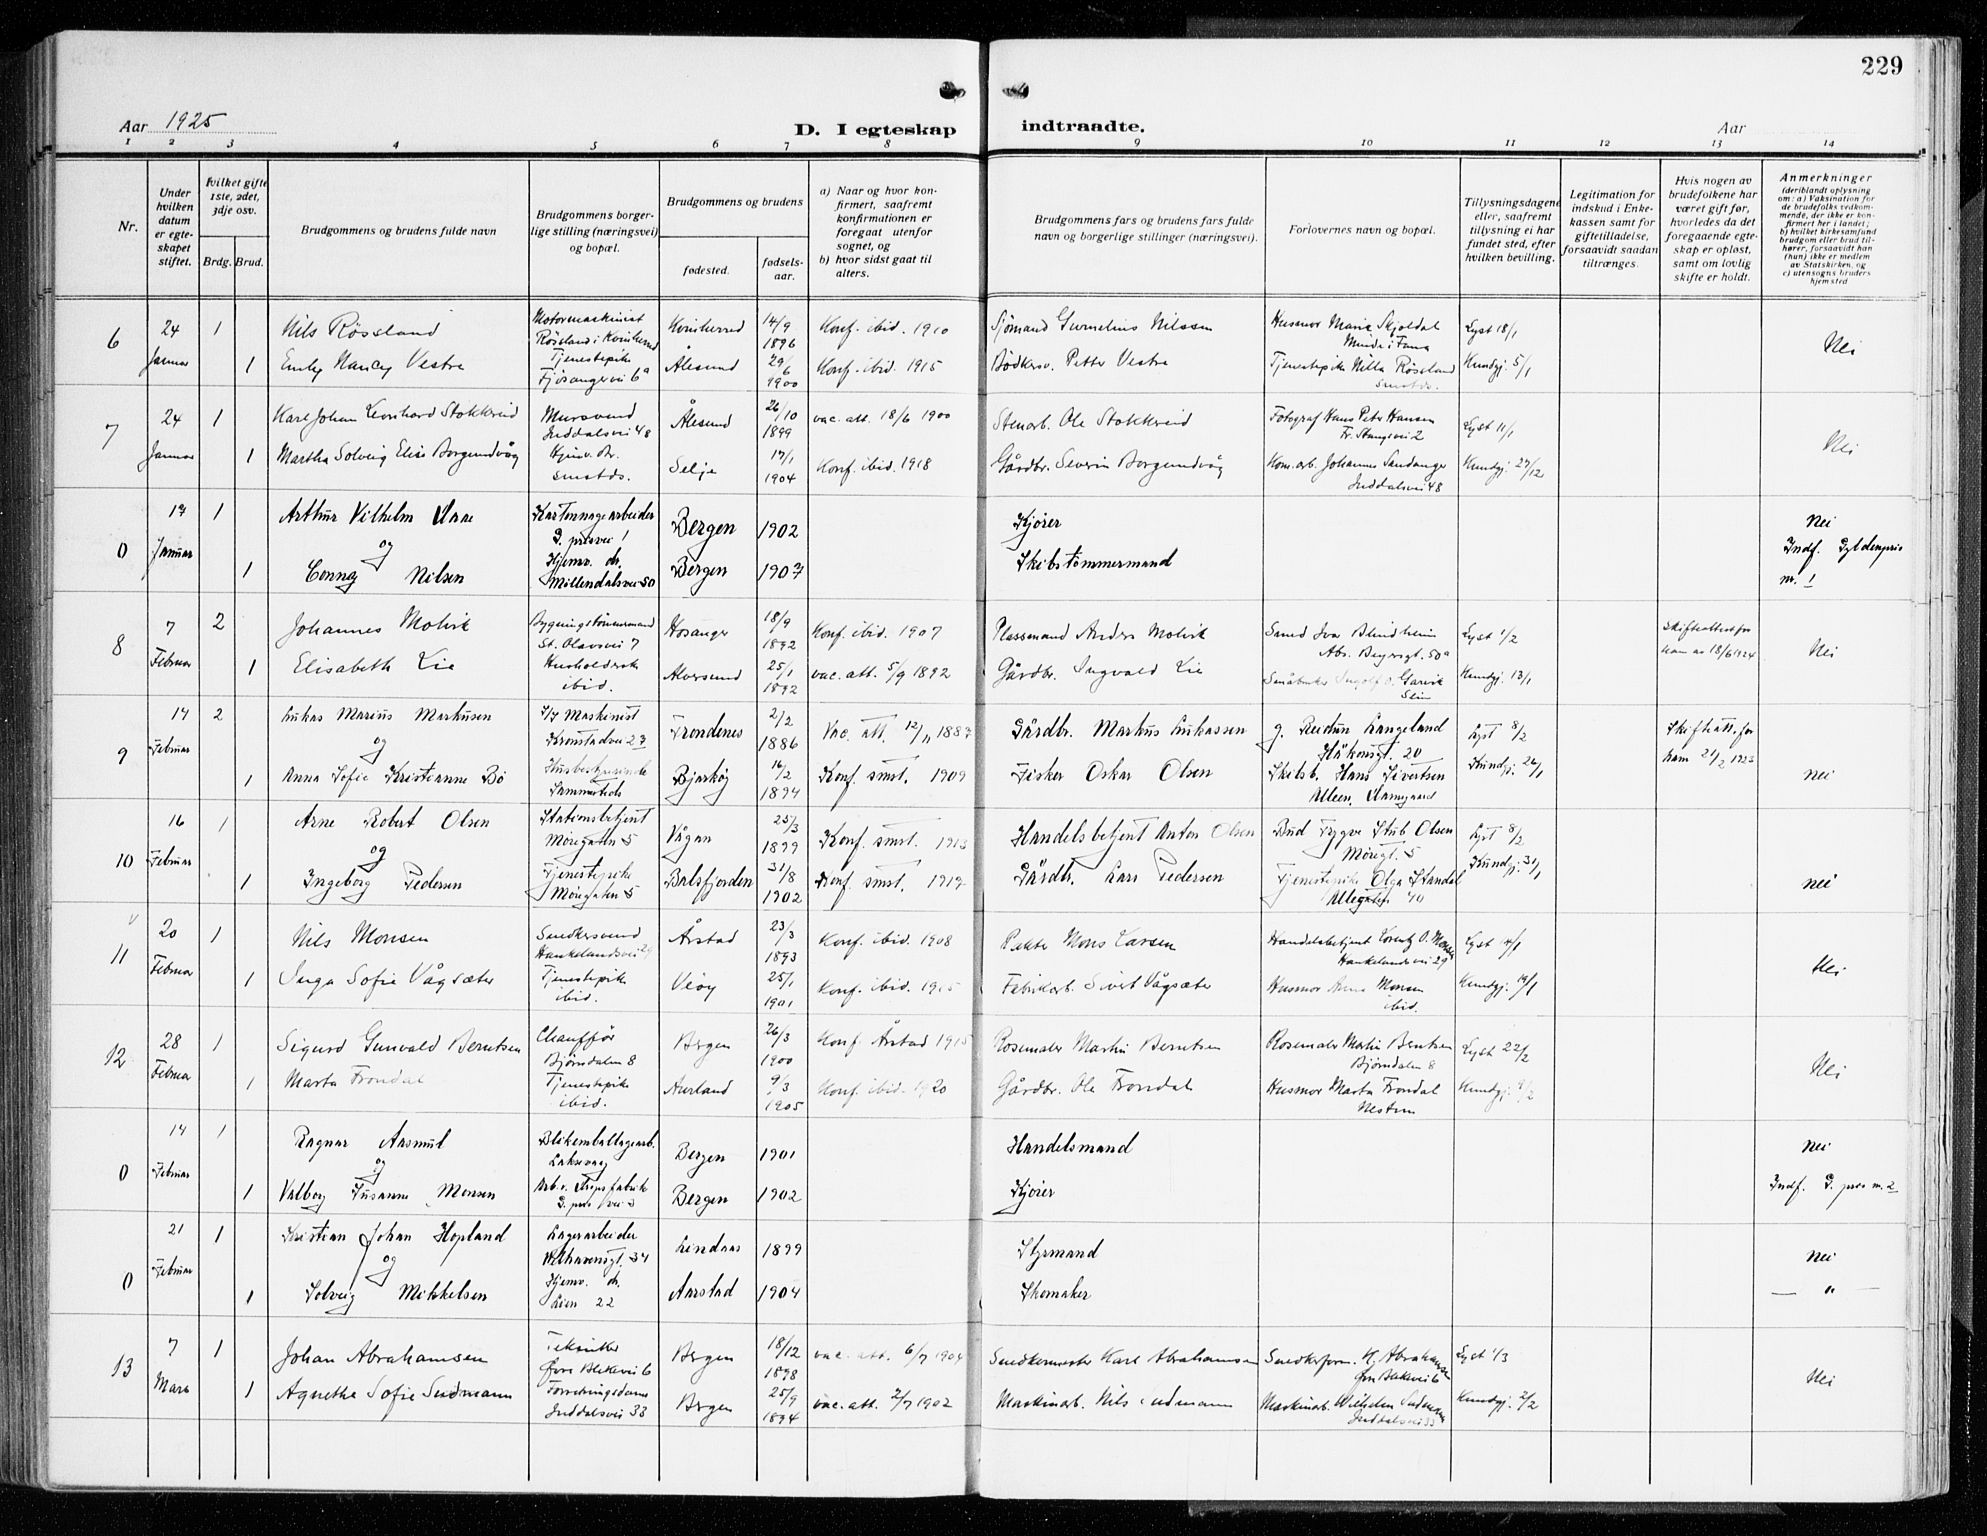 229
Aar 1925
D. I egteskap indtraadte.
Aar
1 2 3 4 5 6 7 8 9 10 11 12 13 14
Nr.
Under hvilken datum er egteskapet stiftet.
Hvilket gifte 1ste, 2det, 3dje osv.
Brdg. Brud.
Brudgommens og brudens fulde navn
Brudgommens borgerlige stilling (næringsvei) og bopæl.
Brudgommens og brudens
fødested.
fødselsaar.
a) Naar og hvor konfirmert, saafremt konfirmationen er foregaat utenfor sognet, og
b) hvor sidst gaat til alters.
Brudgommens fars og brudens fars fulde navn og borgerlige stillinger (næringsvei).
Forlovernes navn og bopæl.
Tillysningsdagene eller, saafremt tillysning ei har fundet sted, efter hvilken bevilling.
Legitimation for indskud i Enkekassen samt for giftetilladelse, forsaavidt saadan tiltrænges.
Hvis nogen av brudefolkene har været gift før, hvorledes da det foregaaende egteskap er opløst, samt om lovlig skifte er holdt.
Anmerkninger
(deriblandt oplysning om: a) Vaksination for de brudefolks vedkommende, der ikke er konfirmert her i landet; b) hvilket kirkesamfund brudgom eller brud tilhører, forsaavidt han (hun) ikke er medlem av Statskirken, og c) utensogns bruders hjemsted
6 24 Januar 1 Nils Røssland Motormaskinist Røsland i Kvinherred Kvinherred 14/9 1896 Konf. ibid. 1910 Sjømand Gurnelius Nilssen Husmor Maria Skjoldal Minde i Fana Lyst 18/1 Nei
1 Emly Nancy Vestre Tjenestepike Fjøsangervei 6a Ålesund 29/6 1900 Konf. ibid. 1915 Bødkersv. Petter Vestre Tjenestepike Nilla Røssland smstds. Kundgj. 5/1
7 24 Januar 1 Karl Johan Leonhard Stokkreid Mursvend Inddalsvei 48 Ålesund 26/10 1899 vac. att. 18/6 1900 Stenarb. Ole Stokkreid Fotograf Hans Peter Hansen Fr. Stangsvei 2 Lyst 11/1 Nei
1 Martha Solveig Elise Borgundvåg Hjemv. Br. smstds. Selje 17/1 1904 Konf. ibid. 1918 Gårdbr. Severin Borgundvåg Kom. arb. Johannes Sandanger Inddalsvei 48 Kundgj. 27/12
0 17 Januar 1 Arthur Vilhelm Unne Kartonnagearbeider G. presvei 1 Bergen 1902 Kjører Nei
og
1 Conny Nilsen Hjemv. dr. Millendalsvei 50 Bergen 1907 Skibstømmermand Indf. Gyldenpris nr. 1
8 7 Februar 2 Johannes Molvik Bygningstømmermand St. Olavsvei 7 Hosanger 18/9 1892 Konf. ibid. 1907 Plassmand Anders Molvik Smed Ivar Blindheim Abs. Beyersgt. 50a Lyst 1/2 Skifteattest for ham av 18/6 1924 Nei
1 Elisabeth Lie Husholderske ibid. Alversund 25/1 1892 vac. att. 5/9 1892 Gårdbr. Ingvald Lie Småbruker Ingolf O. Garvik Kundgj. 13/1
9 14 Februar 2 Lukas Marius Markusen S/S Maskinist Kronstadvei 27 Trondenes 2/2 1886 Vac. att. 12/11 1887 Gårdbr. Markus Lukassen g. Reidun Langeland Håkonsgt. 20 Lyst 8/2 Skifteatt. for ham 21/2 1923
og
1 Anna Sofie Kristianne Bö Husbestyrerinde Sammesteds Bjarkøy 16/2 1894 Konf. smst. 1909 Fisker Oskar Olsen Skilsb. Hans Sivertsen Kundgj. 26/1 nei
10 16 Februar 1 Arne Robert Olsen Stationsbetjent Møregaten 5 Vågan 25/3 1899 Konf. smst. 1913 Handelsbetjent Anton Olsen Bud Trygve Stub Olsen Møregt. 5 Lyst 8/2
og
1 Ingeborg Pedersen Tjenestepike Møregaten 5 Balsfjorden 31/8 1902 Konf. smst. 1917 Gårdbr. Lars Pedersen Tjenestepike Olga Standal Allegaten 40 Kundgj. 31/1 nei
11 20 Februar 1 Nils Monsen Snedkersvend Haukelandsvei 29 Årstad 23/3 1893 Konf. ibid. 1908 Pakke Mons Larsen Handelsbetjent Lorentz O. Monsen Haukelandsvei 29 Lyst 4/1 Nei
1 Inga Sofie Vågsæter Tjenestepike ibid. Veøy 25/1 1901 Konf. ibid. 1915 Fabrikarb. Sivert Vågsæter Husmor Anna Monsen ibid. Kundgj. 19/1
12 28 Februar 1 Sigurd Gunvald Berntsen Chauffør Bjørndalen 8 Bergen 26/3 1900 Konf. Årstad 1915 Rosemaler Martin Berntsen Rosemaler Martin Berntsen Bjørndalen 8 Lyst 22/2 Nei
1 Marta Frondal Tjenestepike ibid. Aurland 9/3 1905 Konf. ibid. 1920 Gårdbr. Ole Frondal Husmor Marta Frondal Nestun Kundgj. 9/2
0 14 Februar 1 Ragnar Aasmul Blikemballagearb. Laksevaag Bergen 1901 Handelsmand Nei
og
1 Valborg Susanne Monsen Arb. v. fabrik G. pris vei 3 Bergen 1902 Kjører Indf. G. pris nr. 2
0 21 Februar 1 Kristian Johan Hopland Lagerarbeider Welhavensgt. 34 Lindaas 1899 Styrmand Nei
og
1 Solveig Mikkelsen Hjemv. dr. Lien 22 Aarstad 1904 Skomaker — " —
13 7 Mars 1 Johan Abrahamsen Tekniker Øvre Blekevei 6 Bergen 18/12 1898 vac. att. 6/7 1904 Snedkermester Karl Abrahamsen Snedkerform. Hj. Abrahamsen Øvre Blekevei 6 Lyst 1/3 Nei
1 Agnethe Sofie Sudmann Forretningsdame Inddalsvei 33 Bergen 25/9 1894 vac. att. 2/7 1902 Maskinarb. Nils Sudmann Maskinarb. Wilhelm Sudmann Inddalsvei 33 Kundgj. 2/2